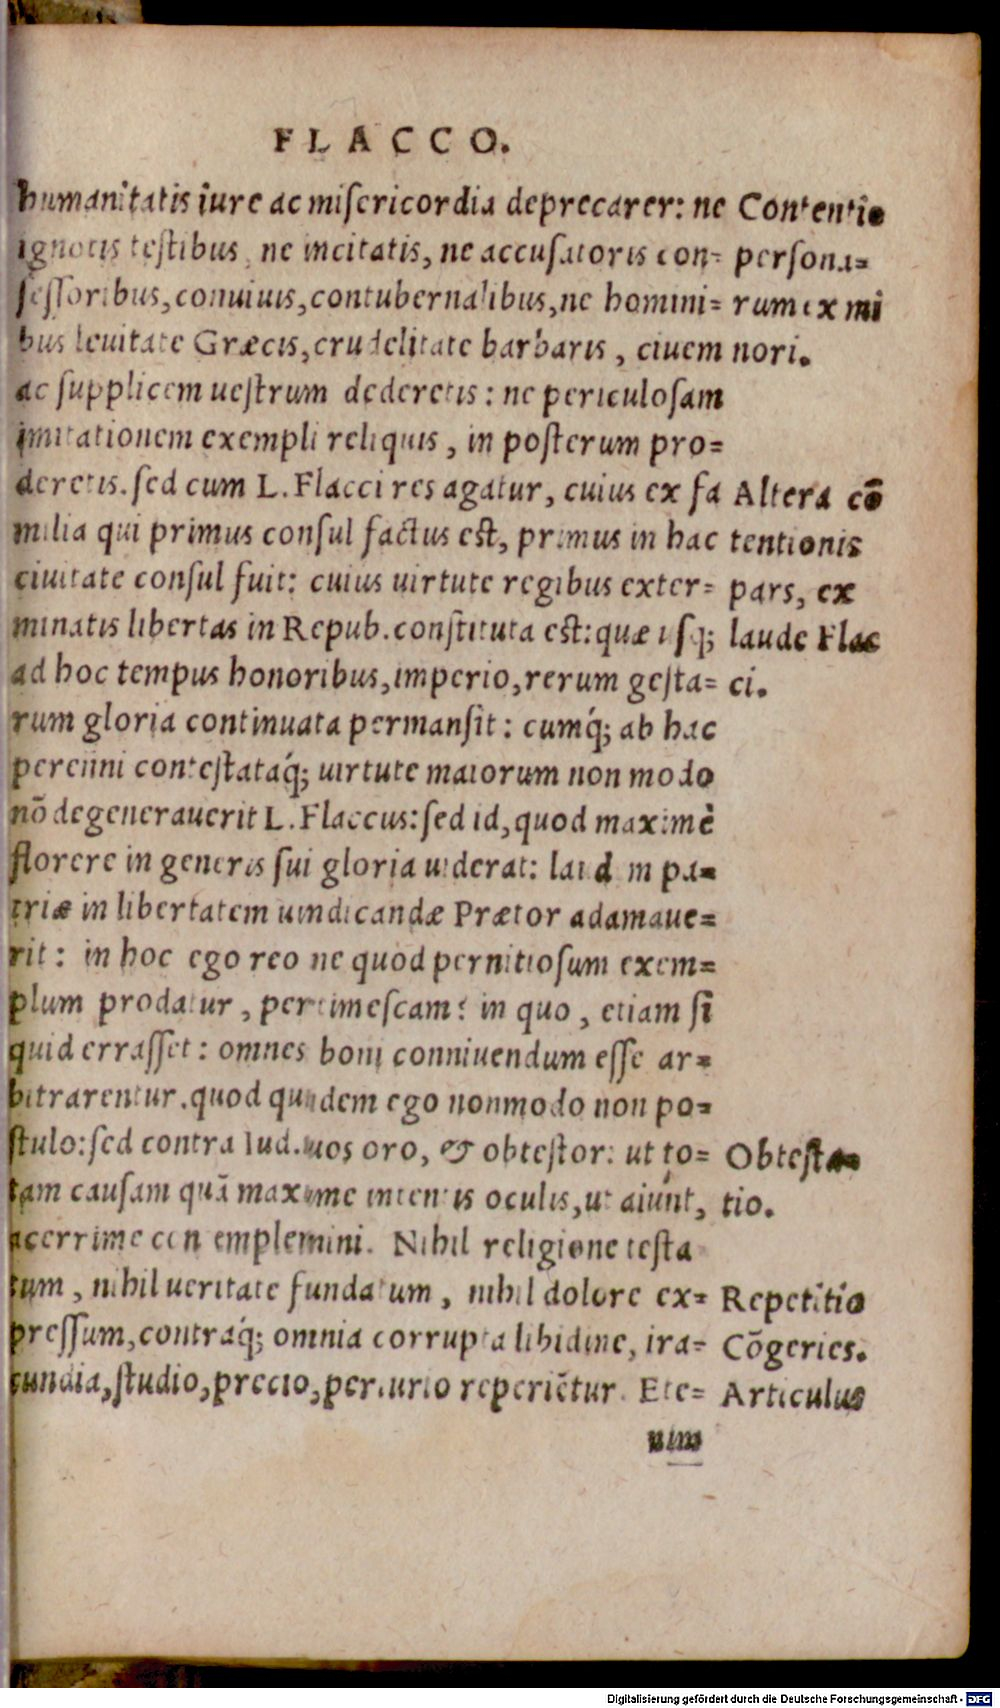 FLACCO.
humanitatis iure ac misericordia deprecarer: ne
ignotis testibus, ne incitatis, ne accusatoris con-
sessoribus, conuiuis, contubernalibus, ne homini-
bus leuitate Græcis, crudelitate barbaris, ciuem
ac supplicem uestrum dederetis: ne periculosam
imitationem exempli reliquis, in posterum pro-
deretis. sed cum L. Flacci res agatur, cuius ex fa
milia qui primus consul factus est, primus in hac
ciuitate consul fuit: cuius uirtute regibus exter-
minatis libertas in Repub. constituta est: quæ usq;
ad hoc tempus honoribus, imperio, rerum gesta-
rum gloria continuata permansit: cumq́; ab hac
perenni contestataq́; uirtute maiorum non modo
nō degenerauerit L. Flaccus: sed id, quod maximè
florere in generis sui gloria uiderat: laudem pa-
triæ in libertatem uindicandæ Prætor adamaue-
rit: in hoc ego reo ne quod pernitiosum exem-
plum prodatur, pertimescam? in quo, etiam si
quid errasset: omnes boni conniuendum esse ar-
bitrarentur. quod quidem ego nonmodo non po-
stulo: sed contra Iud. uos oro, & obtestor: ut to-
tam causam quā maxime intentis oculis, ut aiunt,
acerrime contemplemini. Nihil religione testa
tum, nihil ueritate fundatum, nihil dolore ex-
pressum, contraq́; omnia corrupta libidine, ira-
cundia, studio, precio, periurio reperiētur. Ete-
nim
Contentio
persona-
rum ex mi
nori.
Altera cō
tentionis
pars, ex
laude Flac
ci.
Obtesta-
tio.
Repetitio
Cōgeries.
Articulus
Digitalisierung gefördert durch die Deutsche Forschungsgemeinschaft - DFG